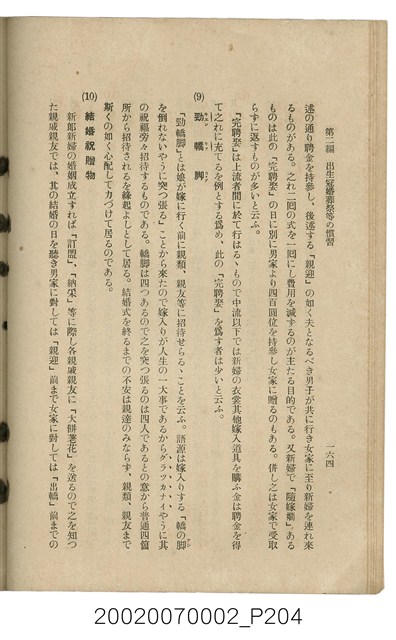 第二編　出生冠婚葬祭等の慣習
一六四
述の通り聘金を持參し、後述する「親迎」の如く夫となるべき男子が共に行き女家に至り新婦を連れ來
るものがある。之れ二囘の式を一囘にし費用を減するのが主たる目的である。又新婦で「隨嫁嫺」ある
ものは此の「完聘娶」の日に別に男家より四百圓位を持參し女家に贈るのもある。併し之は女家で受取
らずに返すものが多いと云ふ。
「完聘娶」は上流者間に於て行はるゝもので中流以下では新婦の衣裳其他嫁入道具を購ふ金は聘金を得
て之れに充てるを例とする爲め、此の「完聘娶」を爲す者は少いと云ふ。
(9)　勁轎脚
「勁轎脚」とは娘が嫁に行く前に親類、親友等に招待せらるゝことを云ふ。語源は嫁入りする「轎の脚
を倒れないやうに突つ張る」ことから來たので嫁入りが人生の一大事であるからグラツカナイやうに其
の祝福旁々招待するものである。轎脚は四つあるので之を突つ張るのは四人であるとの意から普通四個
所から招待されるを緣起よしとして居る。結婚式を終るまでの不安は親達のみならず、親類、親友まで
斯くの如く心配して力づけて居るのである。
(10)　結婚祝贈物
新郎新婦の婚姻成立すれば「訂盟」、「納采」等に際し各親戚親友に「大餅蔥花」を送るので之を知つ
た親戚親友では、其の結婚の日を聽き男家に對しては「親迎」前まで女家に對しては「出轎」前までの
20020070002_P204